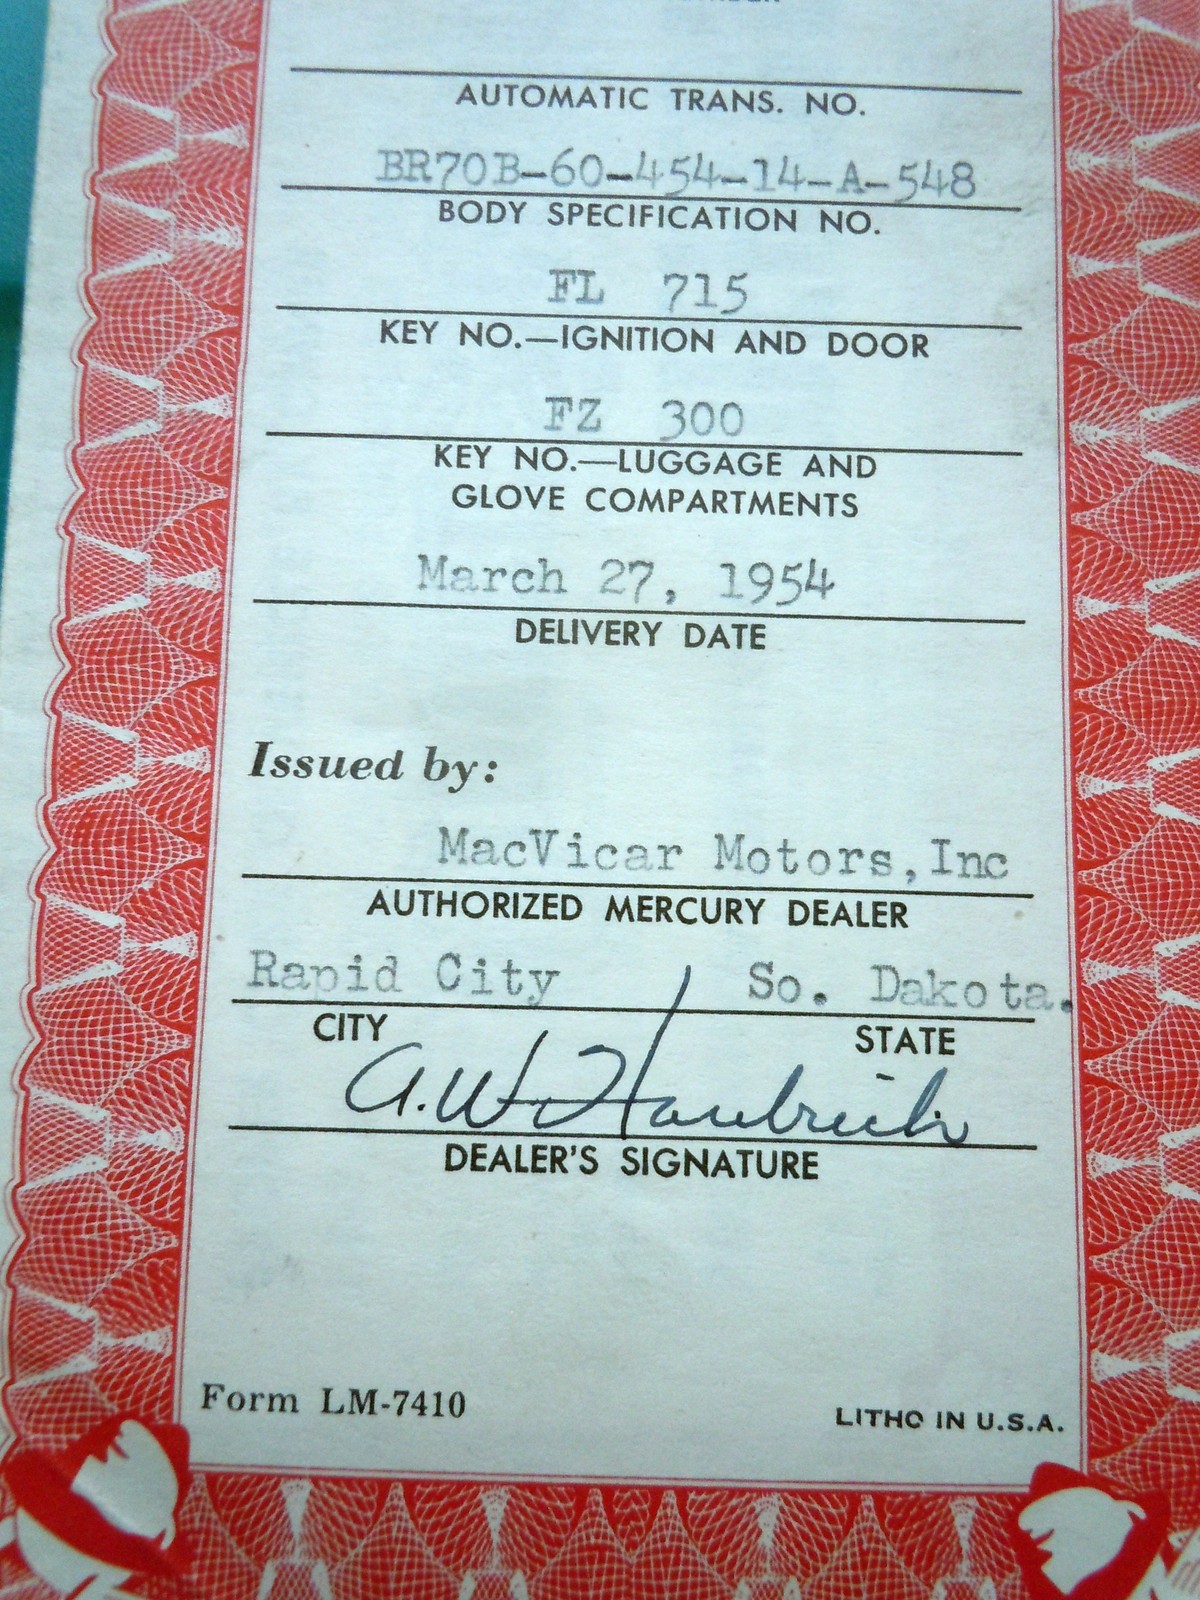 AUTOMATIC TRANS. NO.
BR70B-60-454-14-A-548
BODY SPECIFICATION NO.
FL 715
KEY NO.—IGNITION AND DOOR
FZ 300
KEY NO.—LUGGAGE AND
GLOVE COMPARTMENTS
March 27, 1954
DELIVERY DATE
Issued by:
MacVicar Motors, Inc
AUTHORIZED MERCURY DEALER
Rapid City So. Dakota.
CITY STATE
A.W.
DEALER'S SIGNATURE
Form LM-7410
LITHO IN U.S.A.